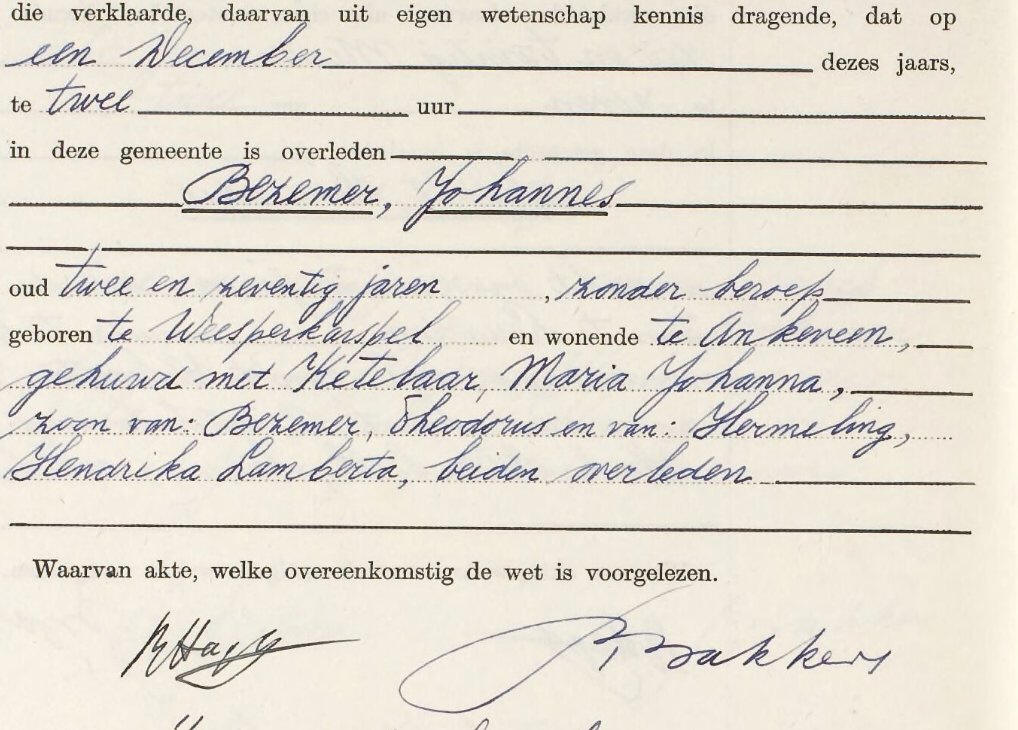 die verklaarde, daarvan uit eigen wetenschap kennis dragende, dat op
een December dezes jaars,
te twee uur
in deze gemeente is overleden
Bezemer, Johannes
oud twee en zeventig jaren , zonder beroep
geboren te Weesperkarspel en wonende te Ankeveen,
gehuwd met Ketelaar, Maria Johanna,
zoon van: Bezemer, Theodorus en van: Hermeling,
Hendrika Lamberta, beiden overleden
Waarvan akte, welke overeenkomstig de wet is voorgelezen.
Bakkers